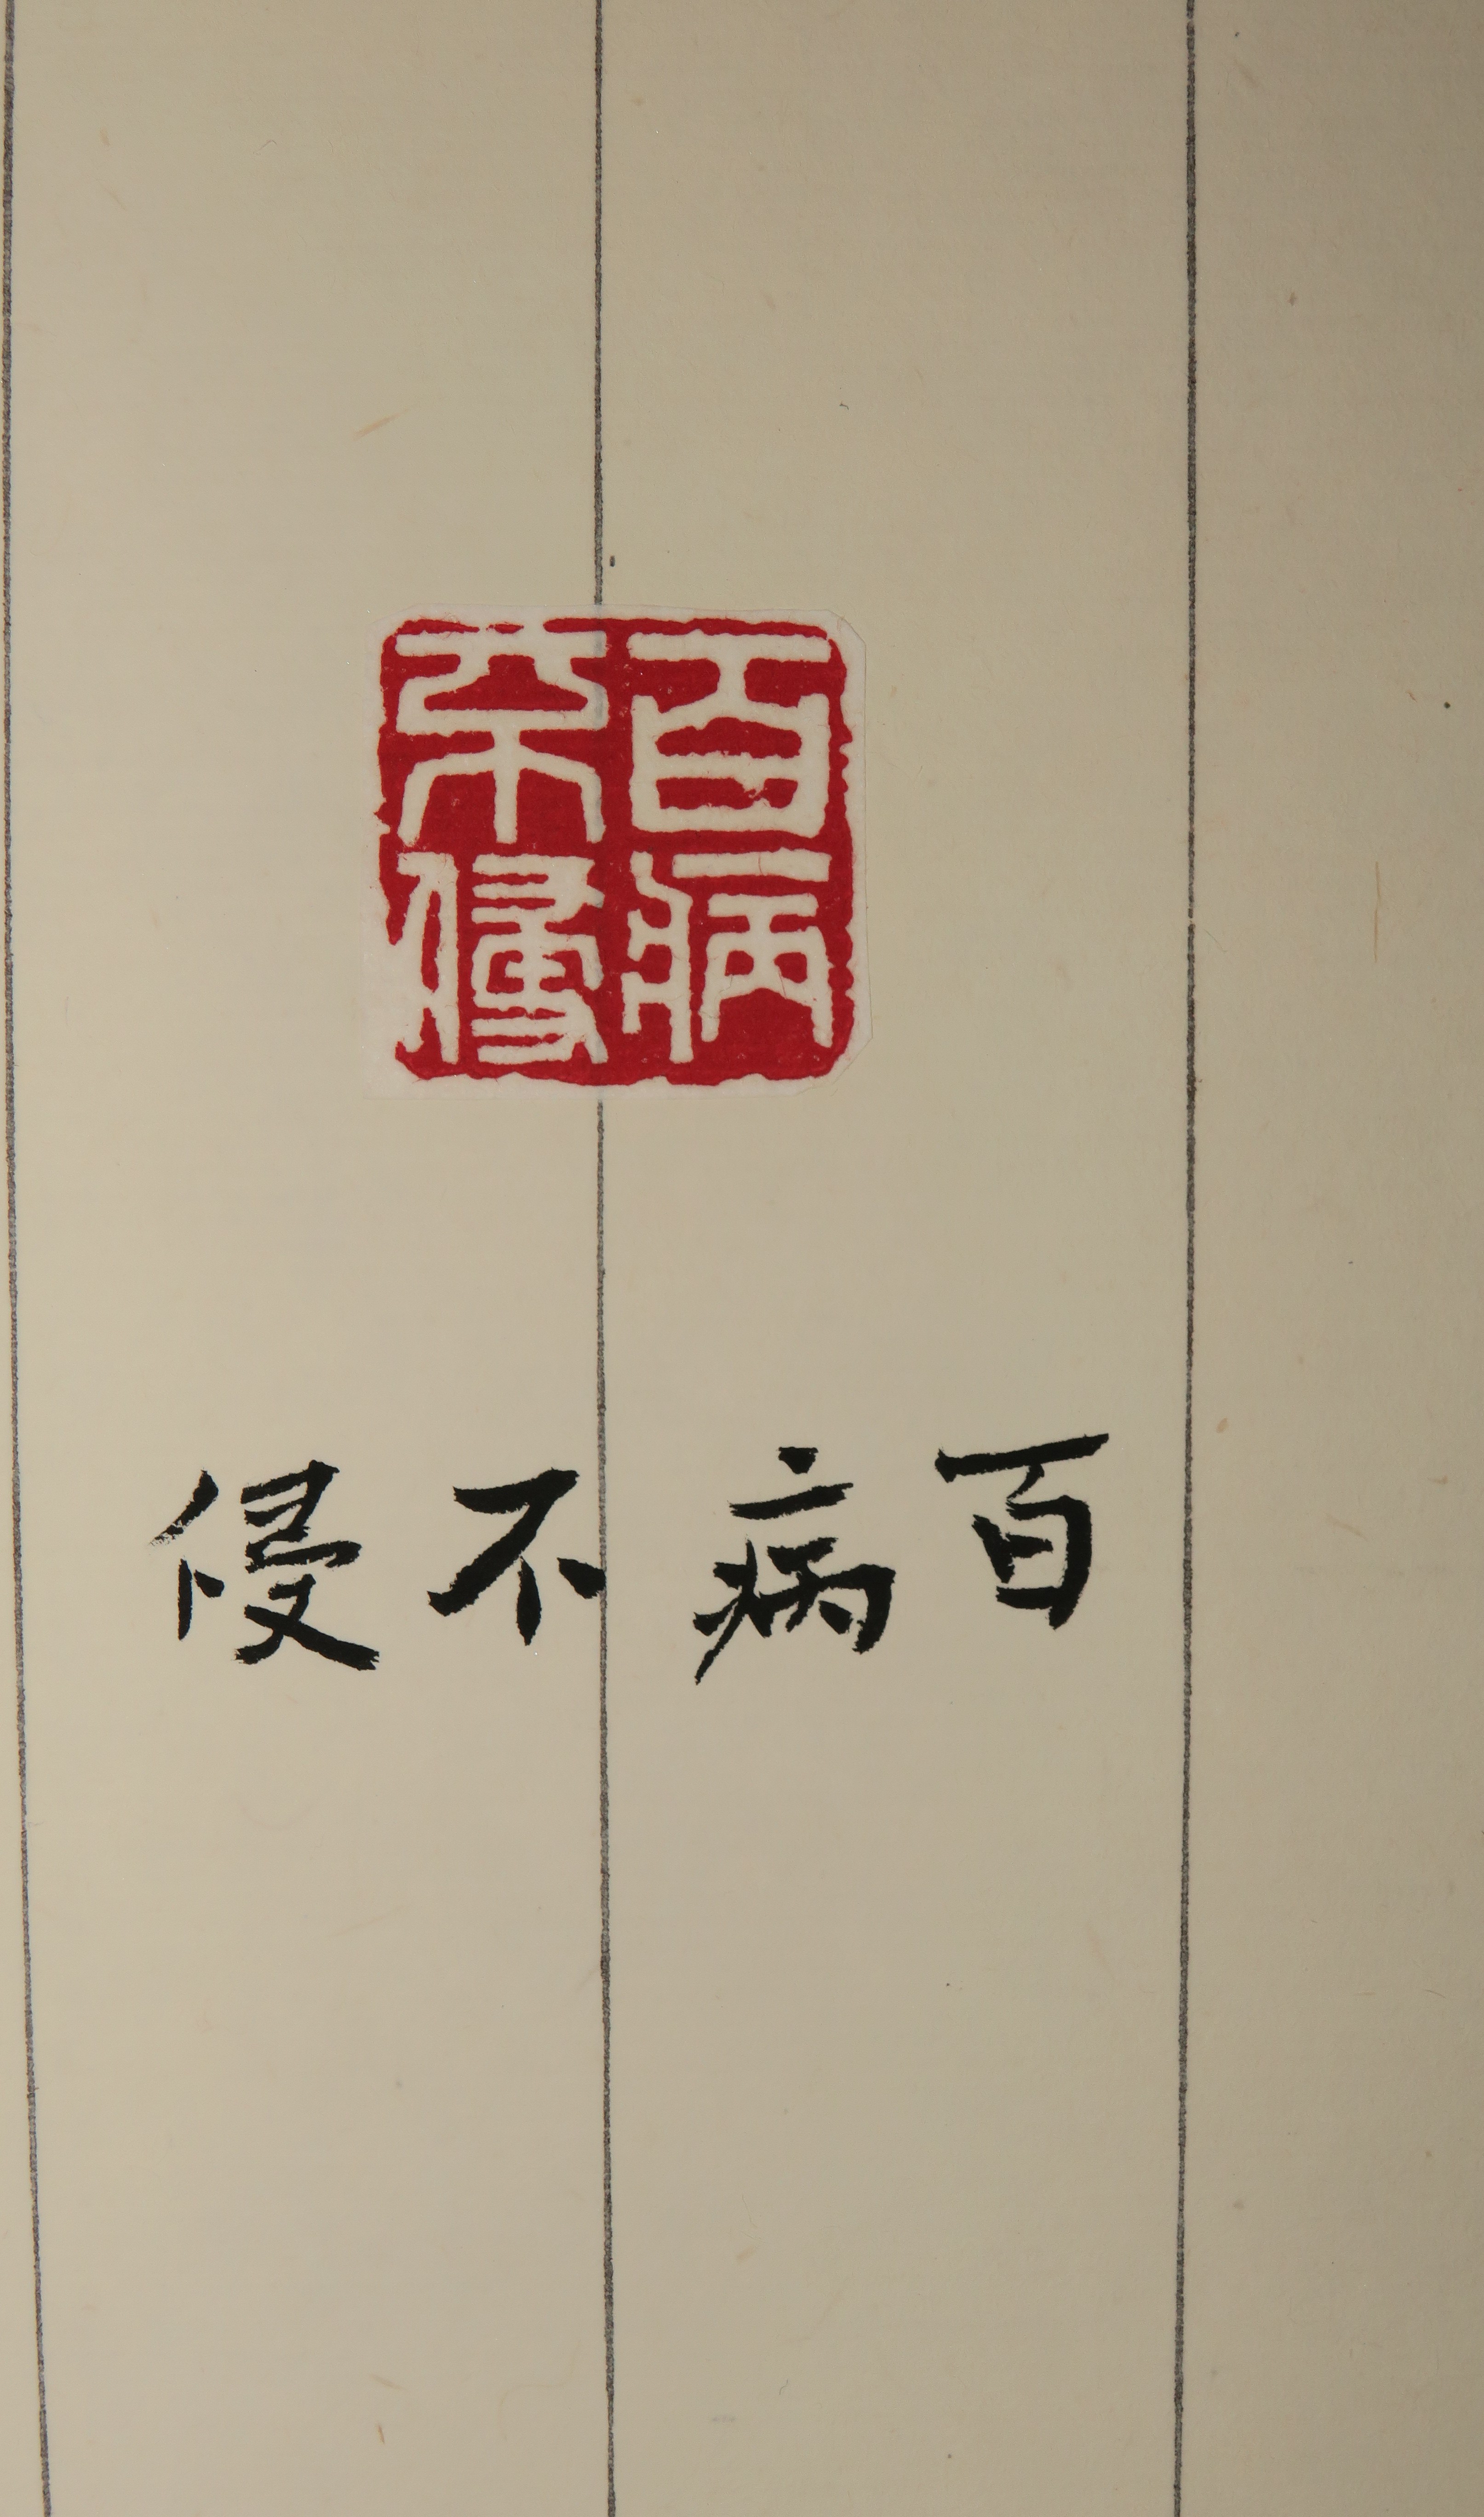 百病
不侵
百病不侵